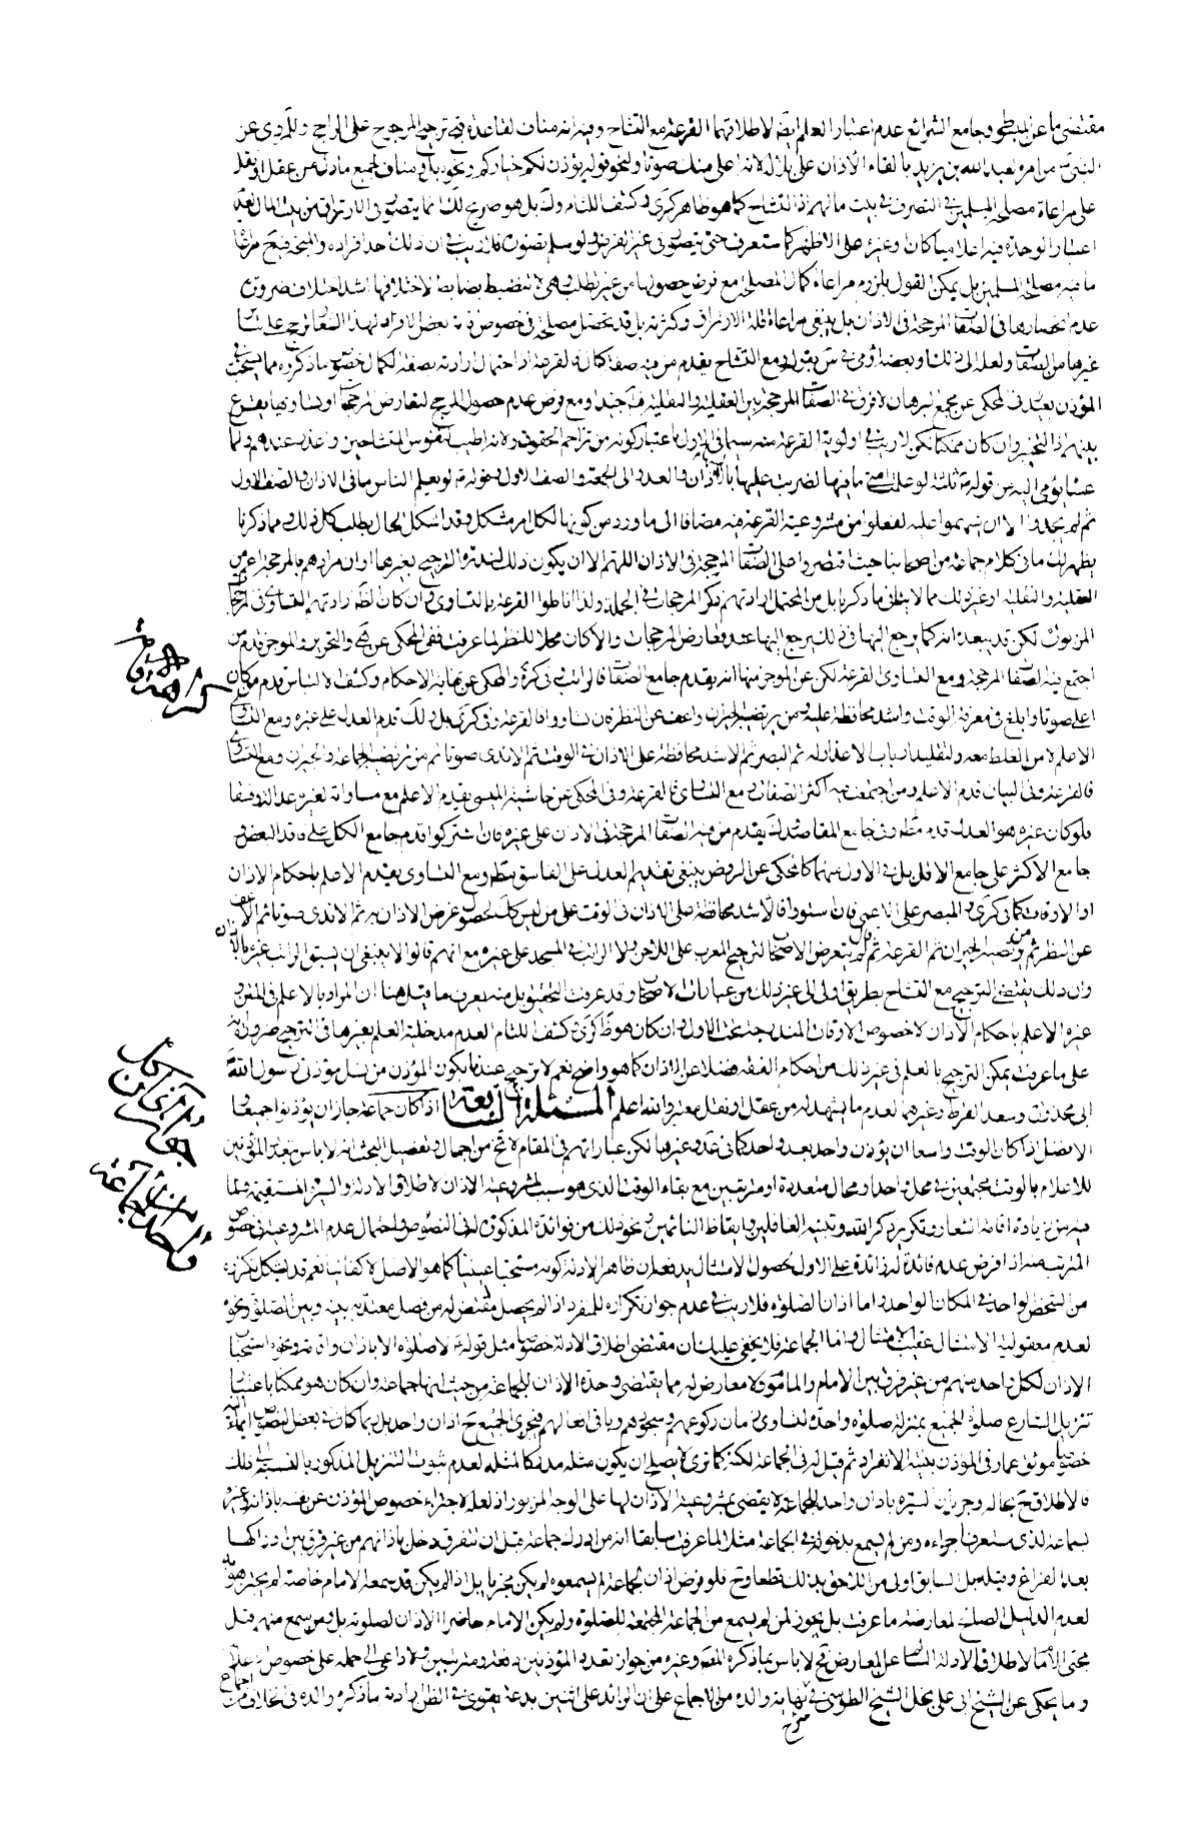 مقتضى ما عن المبسوط وجامع الشرائع عدم اعتبار العلم ايضا لاطلاقهما القرعة مع التشاح وفيه انه مناف لقاعدة قبح ترجيح المرجوح على الراجح وللمروي عن
النبي ص من امره لعبد الله بن زيد بالقاء الاذان على بلال لانه اعلى منك صوتا ولنحو قوله يؤذن لكم خياركم ونحوه بل ومناف لجميع ما دل من عقل او نقل
على مراعاة مصلحة المسلمين في التصرف في بيت مالهم اذ التشاح كما هو ظاهر كرى وكشف اللثام وك بل هو صريح لك انما يتصور في الارتزاق من بيت المال لعدم
اعتبار الوحدة فيه اعلاميا كان او غيره على الاظهر كما ستعرف حتى يتصور في غير الفرض ولو سلم تصوره فلا ريب في ان ذلك احد افراده والمتجه فيه مراعاة
ما فيه مصلحة المسلمين بل يمكن القول بلزوم مراعاة كمال المصلحة مع فرض حصولها من غير طلب وهي لا تنضبط بضابط لاختلافها اشد اختلاف ضرورة
عدم انحصارها في الصفات المرجحة في الاذان بل ينبغي مراعاة قلة الارتزاق وكثرته بل قد يحصل مصلحة في خصوص ذلك لبعض الافراد لهذا الشعار ترجح على
غيرها من الصفات ولعله الى ذلك او بعضه اومى في س بقوله ومع التشاح يقدم من فيه صفة كمال والقرعة اذ احتمال ارادته بصفة الكمال خصوص ما ذكروه مما يستحب في
المؤذن بعيد وفي المحكي عن مجمع البرهان لا فرق في الصفات المرجحة بين العقلية والنقلية وهو جيد ومع فرض عدم حصول المرجح لتعارض المرجحات او تساويها يقرع
بينهم اذ التخيير وان كان ممكنا لكن لا ريب في اولوية القرعة منه سيما في الاول باعتبار كونه من تزاحم الحقوق ولانه اطيب لنفوس المتشاحين واعذر عندهم ولما
عساه يؤمي اليه من قوله ص ثلثة لو علمت امتي ما فيها لضربت عليها بالسهام الاذان والغدو الى الجمعة والصف الاول وقوله ص لو يعلم الناس ما في الاذان والصف الاول
ثم لم يجدوا الا ان يستهموا عليه لفعلوا من مشروعية القرعة فيه مضافا الى ما ورد من كونها لكل امر مشكل وقد اشكل الحال بطلب كل ذلك ومما ذكرنا
يظهر لك ما في كلام جماعة من اصحابنا حيث اقتصروا على الصفات المرجحة في الاذان اللهم الا ان يكون ذلك لندرة الترجيح بغيرها او ان مرادهم بالمرجحة اعم من
العقلية والنقلية او غير ذلك مما لا ينافي ما ذكرنا بل من المحتمل ارادتهم ذكر المرجحات في الجملة ولذا اناطوا القرعة بالتساوي وان كان الظاهر ارادتهم التساوي في المرجحات
المزبورة لكن قد يبعده انه كما يرجع اليها في ذلك يرجع اليها عند تعارض المرجحات والا كان محلا للنظر لما عرفت ففي المحكي عن هي والتحرير والموجز قدم من
اجتمع فيه الصفات المرجحة ومع التساوي القرعة لكن عن الموجز منها انه يقدم جامع الصفات فالراتب في كرة والمحكي عن نهاية الاحكام وكشف الالتباس قدم من كان
اعلى صوتا وابلغ في معرفة الوقت واشد محافظة عليه ومن يرتضيه الجيران واعف عن النظر فان تساووا فالقرعة وفي كرى بل ولك قدم العدل على غيره ومع التساوي
الاعلم لامن الغلط معه ولتقليد ارباب الاعذار له ثم المبصر ثم الاشد محافظة على الاذان في الوقت ثم الاندى صوتا ثم من يرتضيه الجماعة والجيران ومع التساوي
فالقرعة وفي البيان قدم الاعلم ومن اجتمعت فيه اكثر الصفات ومع التساوي القرعة وفي المحكي عن حاشية الميسي تقديم الاعلم مع مساواته لغيره عدالة وفسقا
فلو كان غيره هو العدل قدم مط وفي جامع المقاصد بل لك يقدم من فيه الصفات المرجحة في الاذان على غيره فان اشتركوا قدم جامع الكل على فاقد البعض و
جامع الاكثر على جامع الاقل بل في الاول منهما كالمحكي عن الروض ينبغي تقديم العدل على الفاسق مط ومع التساوي يقدم الاعلم باحكام الاذان
او الاوقات كما في كرى والمبصر على الاعمى فان استووا فالاشد محافظة على الاذان في الوقت على من ليس كك لحصول غرض الاذان به ثم الاندى صوتا ثم الاعف
عن النظر ثم من يرتضيه الجيران ثم القرعة ثم قال ولم يتعرض الاصحاب لترجيح المعرب على اللاحن ولا الراتب في المسجد على غيره مع انهم قالوا لا ينبغي ان يسبق الراتب غيره بالاذان
وان ذلك يقتضي الترجيح مع التشاح بطريق اولى الى غير ذلك من عبارات الاصحاب وقد عرفت التحقيق بل منه يعرف ما قيل هنا ان المراد بالاعلم في المتن و
غيره الاعلم باحكام الاذان لا خصوص الاوقات المندرجة تحت الاول وان كان هو ظ كرى وكشف اللثام لعدم مدخلية العلم بغيرها في الترجيح ضرورة انه
على ما عرفت يمكن الترجيح بالعلم في غير ذلك من احكام الفقه فضلا عن الاذان كما هو واضح نعم لا ترجيح عندنا بكون المؤذن من نسل مؤذني رسول الله ص
ابي محذورة وسعد القرظ وغيرهما لعدم ما يشهد له من عقل او نقل معتبر والله اعلم المسئلة السابعة اذا كان جماعة جاز ان يؤذنوا جميعا و
الافضل اذا كان الوقت واسعا ان يؤذن واحد بعد واحد كما في عد وغيرها لكن عباراتهم في المقام لا تخ من اجمال وتفصيل البحث انه لا باس بتعدد المؤذنين
للاعلام بالوقت مجتمعين في محل واحد او محال متعددة او مترتبين مع بقاء الوقت الذي هو سبب لمشروعية الاذان لاطلاق الادلة والسيرة المستقيمة ولما
فيه من زيادة اقامة الشعار وتكرير ذكر الله وتنبيه الغافلين وايقاظ النائمين ونحو ذلك من فوائده المذكورة في النصوص واحتمال عدم المشروعية في خصوص
المترتبين منه اذا فرض عدم فائدة له زائدة على الاول لحصول الامتثال يدفعه ان ظاهر الادلة كونه مستحبا عينيا كما هو الاصل لا كفائيا نعم قد يشكل تكرره
من الشخص الواحد في المكان الواحد واما اذان الصلوة فلا ريب في عدم جواز تكراره للمنفرد اذا لم يحصل مقتض له من فصل معتد به بينه وبين الصلوة ونحوه
لعدم معقولية الامتثال عقيب الامتثال واما الجماعة فلا يخفى عليك ان مقتضى اطلاق الادلة خصوصا مثل قوله ع لا صلوة الا باذان واقامة ونحوه استحباب
الاذان لكل واحد منهم من غير فرق بين الامام والماموم ولا معارض له مما يقتضي وحدة الاذان للجماعة من حيث انها جماعة وان كان هو ممكنا باعتبار
تنزيل الشارع صلوة الجميع بمنزلة صلوة واحدة لتساوي زمان ركوعهم وسجودهم وباقي افعالهم فيجزي الجميع ح اذان واحد بل ربما كان في بعض النصوص ايماء اليه
خصوصا موثق عمار في المؤذن بنية الانفراد ثم قيل له في الجماعة لكنه كما ترى لا يصلح ان يكون مثله مدركا لمثله لعدم ثبوت التنزيل المذكور بالنسبة الى ذلك
فالاطلاق ح بحاله وجريان السيرة باذان واحد للجماعة لا يقتضي مشروعية الاذان لها على الوجه المزبور اذ لعله لاجزاء خصوص المؤذن عن نفسه باذانه وغيره
بسماعه الذي ستعرف اجزاءه ومن لم يسمع بدخوله في الجماعة مثلا لما عرفت سابقا انه من ادرك جماعة قبل ان تتفرق دخل باذانهم من غير فرق بين ادراكها
بعد الفراغ وقبله بل السابق اولى من اللاحق بذلك قطعا وح فلو فرض اذان لجماعة لم يسمعوه لم يكن مجزيا بل اذا لم يكن قد سمعه الامام خاصة لم يجتزء هو به
لعدم الدليل الصالح لمعارضة ما عرفت بل يجوز لمن لم يسمع من الجماعة المجتمعة للصلوة ولم يكن الامام حاضرا الاذان لصلوته بل ومن سمع منهم قبل
مجئ الامام لاطلاق الادلة السالم عن المعارض فح لا باس بما ذكره المصنف وغيره من جواز تعدد المؤذنين دفعة ومترتبين ولا داعي الى حمله على خصوص الاعلام
وما يحكى عن الشيخ ابي علي نجل الشيخ الطوسي في شرح نهاية والده من الاجماع على ان الزائد على اثنين بدعة يقوى في الظن ارادته ما ذكره والده في الخلاف من اجماع